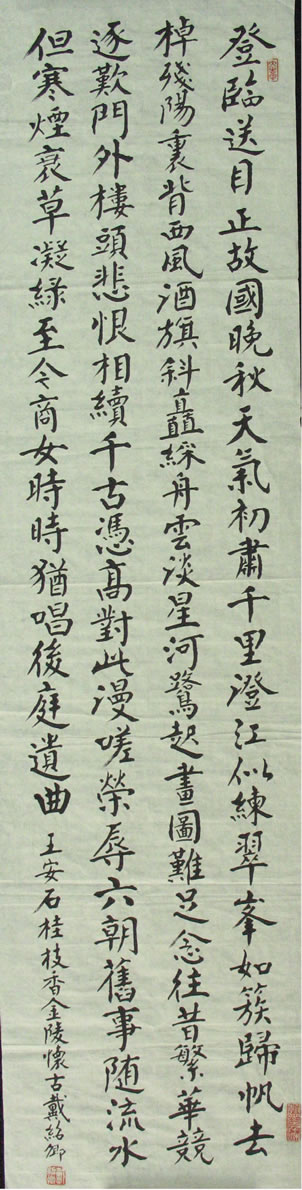 登臨送目正故國晚秋天氣初肅千里澄江似練翠峯如簇歸帆去
棹殘陽裏背西風酒旗斜矗綵舟雲淡星河鷺起畫圖難足念往昔繁華競
逐歎門外樓頭悲恨相續千古憑高對此漫嗟榮辱六朝舊事隨流水
但寒煙衰草凝綠至今商女時時猶唱後庭遺曲 王安石桂枝香金陵懷古戴紹卿